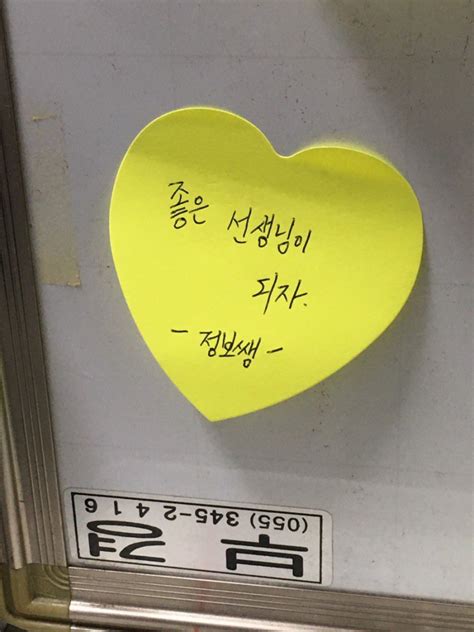 좋은 선생님이
되자.
- 정보쌤 -
(055) 345-2416